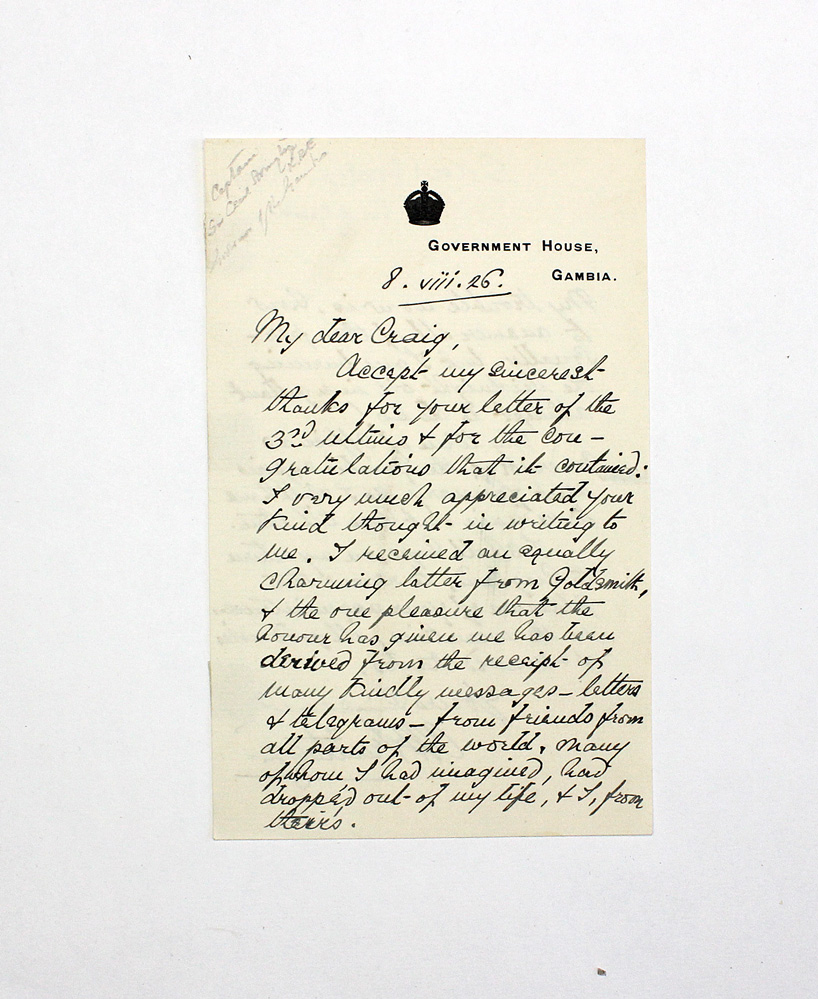 Captain
Sir Cecil Armitage
Governor of the Gambia
GOVERNMENT HOUSE,
GAMBIA.
8. viii. 26.
My dear Craig,
Accept my sincerest
thanks for your letter of the
3rd ultimo & for the con-
gratulations that it contained:
I very much appreciated your
kind thought in writing to
me. I received an equally
charming letter from Goldsmith,
& the one pleasure that the
honour has given me has been
derived from the receipt of
many kindly messages - letters
& telegrams - from friends from
all parts of the world, many
of whom I had imagined, had
dropped out of my life, & I, from
theirs.